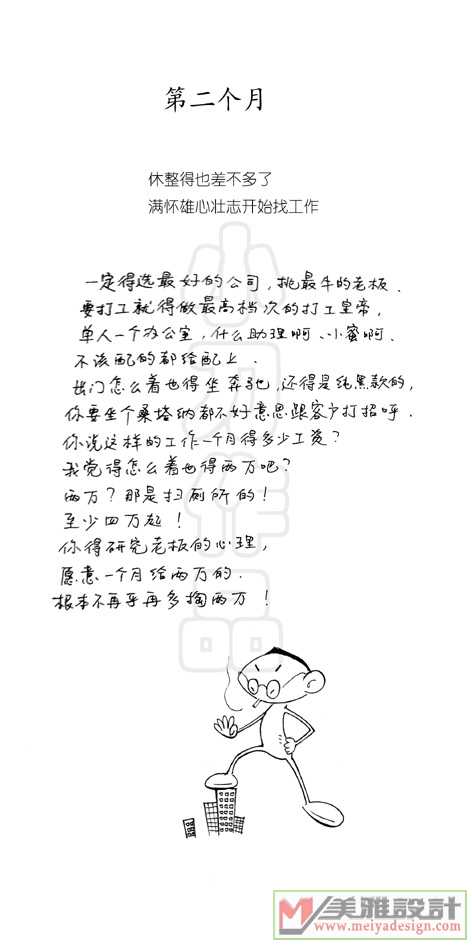 第二个月
休整得也差不多了
满怀雄心壮志开始找工作
一定得选最好的公司，挑最牛的老板．
要打工就得做最高档次的打工皇帝．
单人一个办公室，什么助理啊、小蜜啊．
不该配的都给配上．
出门怎么着也得坐奔驰，还得是纯黑款的，
你要坐个桑塔纳都不好意思跟客户打招呼．
你说这样的工作一个月得多少工资？
我觉得怎么着也得两万吧？
两万？那是扫厕所的！
至少四万起！
你得研究老板的心理，
愿意一个月给两万的．
根本不再乎再多掏两万！
小刀作品
美雅設計
www.meiyadesign.com